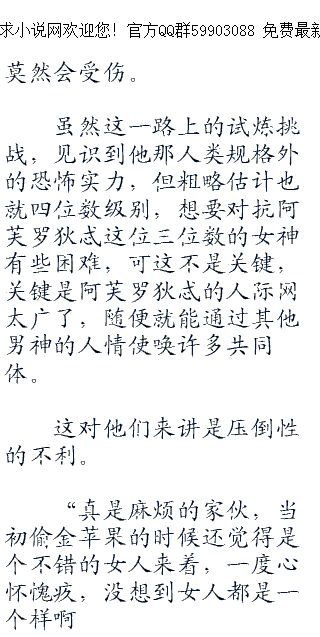 求小说网欢迎您! 官方QQ群59903088 免费最新
莫然会受伤。
虽然这一路上的试炼挑
战，见识到他那人类规格外
的恐怖实力，但粗略估计也
就四位数级别，想要对抗阿
芙罗狄忒这位三位数的女神
有些困难，可这不是关键，
关键是阿芙罗狄忒的人际网
太广了，随便就能通过其他
男神的人情使唤许多共同
体。
这对他们来讲是压倒性
的不利。
“真是麻烦的家伙，当
初偷金苹果的时候还觉得是
个不错的女人来着，一度心
怀愧疚，没想到女人都是一
个样啊